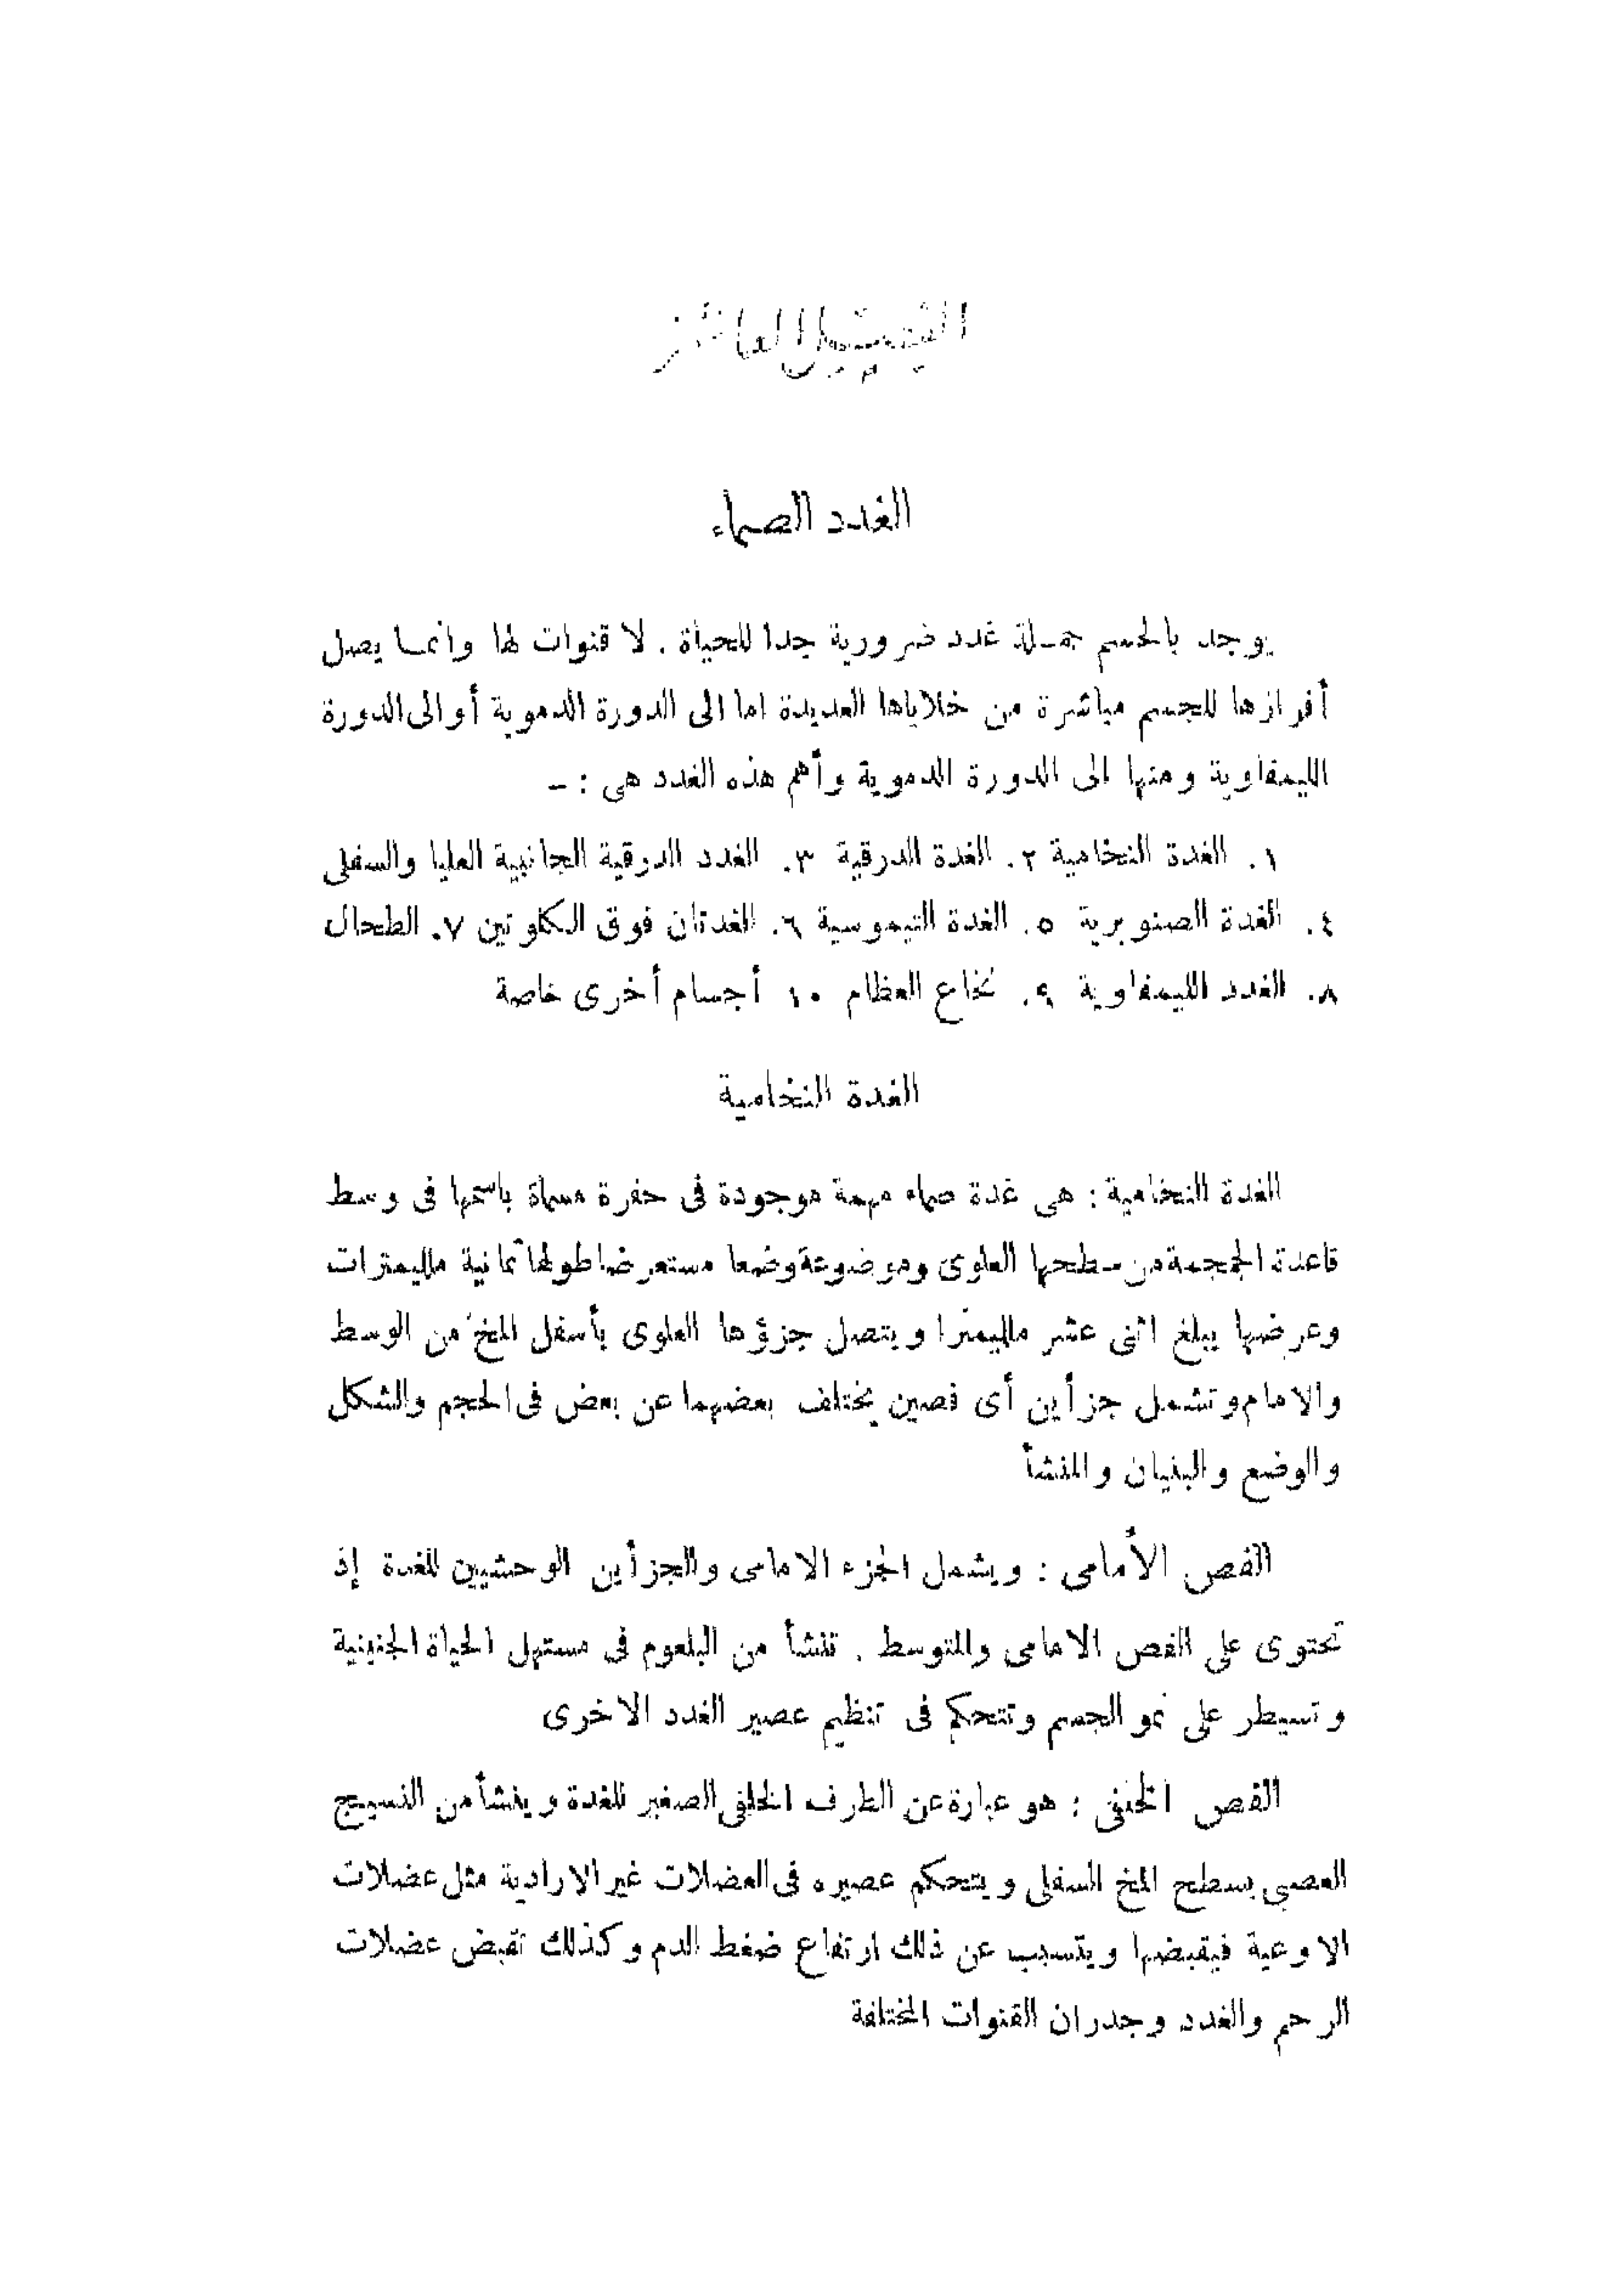 الفصل العاشر
الغدد الصماء
يوجد بالجسم جملة غدد ضرورية جدا للحياة . لا قنوات لها وانما يصل
أفرازها للجسم مباشرة من خلاياها العديدة اما الى الدورة الدموية أو الى الدورة
الليمفاوية ومنها الى الدورة الدموية وأهم هذه الغدد هى : –
١. الغدة النخامية ٢. الغدة الدرقية ٣. الغدد الدرقية الجانبية العليا والسفلى
٤. الغدة الصنوبرية ٥. الغدة التيموسية ٦. الغدتان فوق الكلوتين ٧. الطحال
٨. الغدد الليمفاوية ٩. نخاع العظام ١٠ أجسام أخرى خاصة
الغدة النخامية
الغدة النخامية : هى غدة صماء مهمة موجودة فى حفرة مسماة باسمها فى وسط
قاعدة الجمجمة من سطحها العلوى وموضوعة وضعا مستعرضا طولها ثمانية ملليمترات
وعرضها يبلغ اثنى عشر ملليمترا ويتصل جزؤها العلوى بأسفل المخ من الوسط
والامام وتشمل جزأين أى فصين يختلف بعضهما عن بعض فى الحجم والشكل
والوضع والبنيان والمنشأ
الفص الأمامى : ويشمل الجزء الامامى والجزأين الوحشيين للغدة إذ
تحتوى على الفص الامامى والمتوسط . تنشأ من البلعوم فى مستهل الحياة الجنينية
وتسيطر على نمو الجسم وتتحكم فى تنظيم عصير الغدد الاخرى
الفص الخلفى : هو عبارة عن الطرف الخلفى الصغير للغدة وينشأ من النسيج
العصبى بسطح المخ السفلى ويتحكم عصيره فى العضلات غير الارادية مثل عضلات
الاوعية فيقبضها ويتسبب عن ذلك ارتفاع ضغط الدم وكذلك تقبض عضلات
الرحم والغدد وجدران القنوات المختلفة